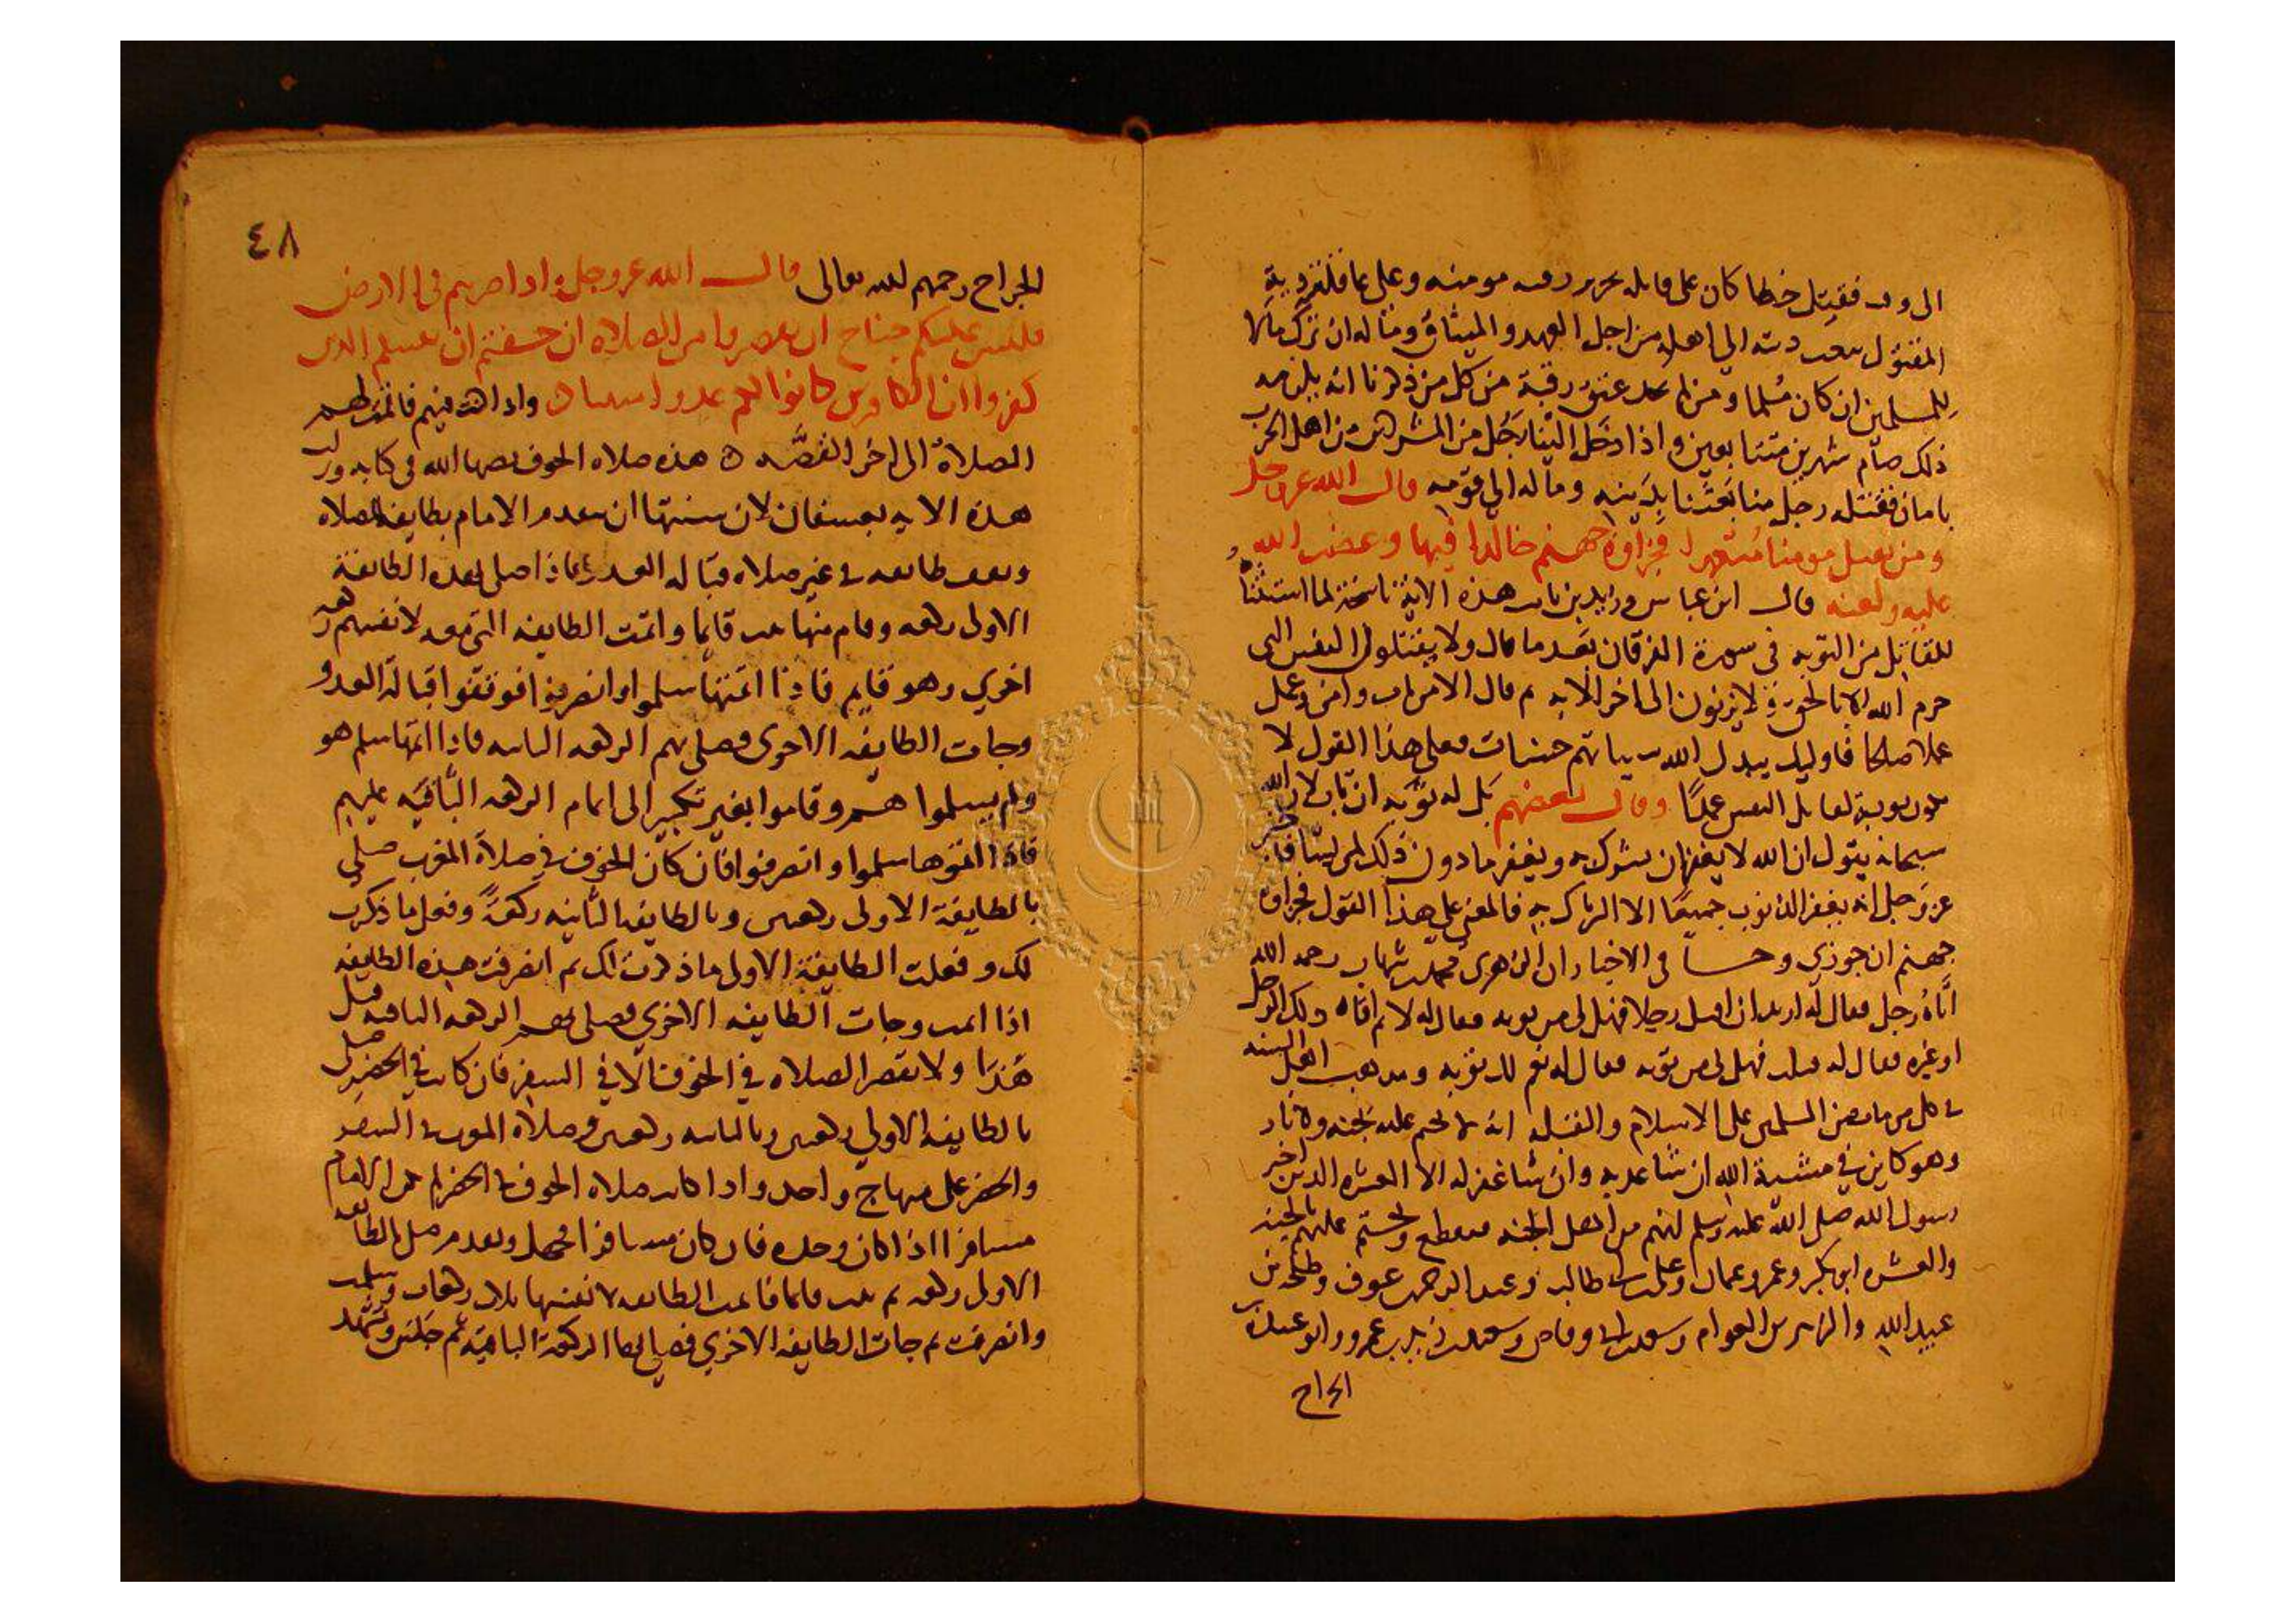 الى وقت فقتل خطا كان على قاتله تحرير رقبه مومنه وعلى عاقلته دية
المقتول تبعث ديته الى اهله من اجل العهد والميثاق وماله ان ترك مالا
للمسلمين ان كان مسلما ومن لم يجد عتق رقبة من كل من ذكرنا انه يلزمه
ذلك صام شهرين متتابعين واذا دخل الينا رجل من المشركين من اهل الحرب
بامان فقتله رجل منا بعثنا بديته وماله الى قومه قال الله عز وجل
ومن يقتل مومنا متعمدا فجزاوه جهنم خالدا فيها وغضب الله
عليه ولعنه قال ابن عباس وزيد بن ثابت هذه الاية ناسخة لما استثنا
للقاتل من التوبه في سورة الفرقان بعد ما قال ولا يقتلون النفس التي
حرم الله الا بالحق ولا يزنون الى اخر الايه ثم قال الا من تاب وامن وعمل
عملا صالحا فاوليك يبدل الله سياتهم حسنات فعلى هذا القول لا
تكون توبة لقاتل النفس عمدًا وقال بعضهم بل له توبه ان تاب لان الله
سبحانه يقول ان الله لا يغفر ان يشرك به ويغفر ما دون ذلك لمن يشا فاخبر
عز وجل انه يغفر الذنوب جميعًا الا الشرك به فالمعنى على هذا القول فجزاوه
جهنم ان جوزي وجا في الاخبار ان الزهرى محمد بن شهاب رحمه الله
اتاه رجل فقال له اريد ان اقتل رجلا فهل لى من توبه فقال له لا ثم اتاه ذلك الرجل
او غيره فقال له قتلت فهل لى من توبه فقال له نعم لك توبه ومذهب اهل السنه
في كل من مات من المسلمين على الاسلام والقبله انه لا يحتم عليه بجنه ولا نار
وهو كاين في مشية الله ان شا عذبه وان شا غفر له الا العشره الذين اخبر
رسول الله صلى الله عليه وسلم انهم من اهل الجنه فيقطع ويحتم عليهم بالجنه
والعشره ابو بكر وعمر وعثمان وعلى بن ابى طالب وعبد الرحمن بن عوف وطلحه بن
عبيد الله والزبير بن العوام وسعد بن ابى وقاص وسعيد بن زيد بن عمرو وابو عبيدة بن
الجراح
٤٨
الجراح رحمهم الله تعالى قال الله عز وجل واذا ضربتم في الارض
فليس عليكم جناح ان تقصروا من الصلاه ان خفتم ان يفتنكم الذين
كفروا ان الكافرين كانوا لكم عدوا مبينا واذا كنت فيهم فاقمت لهم
الصلاة الى اخر القصه هذه صلاه الخوف نصها الله في كتابه
هذه الايه بعسفان لان سنتها ان يتقدم الامام بطايفة للصلاه
وتقف طايفه في غير صلاه قباله العدو فاذا صلى بهذه الطايفة
الاولى ركعه وقام منها ثبت قايما واتمت الطايفه التي معه لانفسهم ركعه
اخري وهو قايم فاذا اتمتها سلموا وانصرفوا فوقفوا قبالة العدو
وجات الطايفه الاخرى فصلى بهم الركعه الثانيه فاذا اتمها سلم هو
ولم يسلموا هم وقاموا بغير تكبير الى اتمام الركعه الباقيه عليهم
فاذا اتموها سلموا وانصرفوا فان كان الخوف في صلاة المغرب صلى
بالطايفة الاولى ركعتين وبالطايفة الثانيه ركعةً وفعل ما ذكرت
لك وفعلت الطايفة الاولى ما ذكرت لك ثم انصرفت هذه الطايفه
اذا اتمت وجات الطايفه الاخري فصلى بهم الركعه الباقيه قبل
هَذا ولا تقصر الصلاه في الخوف الا في السفر فان كانت في الحضر صلى
بالطايفه الاولى ركعتين وبالثانيه ركعتين وصلاة المغرب في السفر
والحضر على منهاج واحد واذا كانت صلاه الخوف في الحضر لم يكن الامام
مسافرا اذا كان وحده فان كان مسافرا فجهل وتقدم صلى بالطايفه
الاولى ركعه ثم ثبت قايما فاتمت الطايفه لانفسها ثلاث ركعات وسلمت
وانصرفت ثم جات الطايفه الاخري فصلى بها الركعة الباقية ثم جلس وتشهد